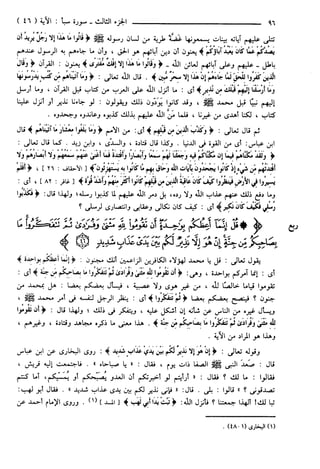 ٩٦ الجزء الثالث - سورة سبأ : الآية ( ٤٦ )
تتلى عليهم آياته بينات يسمعونها غضّة طرية من لسان رسوله ﷺ ﴿ قَالُوا مَا هَٰذَا إِلَّا رَجُلٌ يُرِيدُ أَن
يَصُدَّكُمْ عَمَّا كَانَ يَعْبُدُ آبَاؤُكُمْ ﴾ يعنون أن دين آبائهم هو الحق ، وأن ما جاءهم به الرسول عندهم
باطل - عليهم وعلى آبائهم لعائن الله - ﴿ وَقَالُوا مَا هَٰذَا إِلَّا إِفْكٌ مُّفْتَرًى ﴾ يعنون : القرآن ﴿ وَقَالَ
الَّذِينَ كَفَرُوا لِلْحَقِّ لَمَّا جَاءَهُمْ إِنْ هَٰذَا إِلَّا سِحْرٌ مُّبِينٌ ﴾ . قال الله تعالى : ﴿ وَمَا آتَيْنَاهُم مِّن كُتُبٍ يَدْرُسُونَهَا
وَمَا أَرْسَلْنَا إِلَيْهِمْ قَبْلَكَ مِن نَّذِيرٍ ﴾ أي : ما أنزل الله على العرب من كتاب قبل القرآن ، وما أرسل
إليهم نبيًّا قبل محمد ﷺ ، وقد كانوا يودّون ذلك ويقولون : لو جاءنا نذير أو أنزل علينا
كتاب ، لكنا أهدى من غيرنا ، فلما منّ الله عليهم بذلك كذبوه وعاندوه وجحدوه .
ثم قال تعالى : ﴿ وَكَذَّبَ الَّذِينَ مِن قَبْلِهِمْ ﴾ أي : من الأمم ﴿ وَمَا بَلَغُوا مِعْشَارَ مَا آتَيْنَاهُمْ ﴾ قال
ابن عباس : أي من القوة في الدنيا . وكذا قال قتادة ، والسدي ، وابن زيد . كما قال تعالى :
﴿ وَلَقَدْ مَكَّنَّاهُمْ فِيمَا إِن مَّكَّنَّاكُمْ فِيهِ وَجَعَلْنَا لَهُمْ سَمْعًا وَأَبْصَارًا وَأَفْئِدَةً فَمَا أَغْنَىٰ عَنْهُمْ سَمْعُهُمْ وَلَا أَبْصَارُهُمْ وَلَا
أَفْئِدَتُهُم مِّن شَيْءٍ إِذْ كَانُوا يَجْحَدُونَ بِآيَاتِ اللَّهِ وَحَاقَ بِهِم مَّا كَانُوا بِهِ يَسْتَهْزِئُونَ ﴾ [ الأحقاف : ٢٦ ] ، ﴿ أَفَلَمْ
يَسِيرُوا فِي الْأَرْضِ فَيَنظُرُوا كَيْفَ كَانَ عَاقِبَةُ الَّذِينَ مِن قَبْلِهِمْ كَانُوا أَكْثَرَ مِنْهُمْ وَأَشَدَّ قُوَّةً ﴾ [ غافر : ٨٢ ] ، أي :
وما دفع ذلك عنهم عذاب الله ولا رده ، بل دمر الله عليهم لما كذبوا رسله ، ولهذا قال : ﴿ فَكَذَّبُوا
رُسُلِي فَكَيْفَ كَانَ نَكِيرِ ﴾ أي : كيف كان نكالي وعقابي وانتصاري لرسلي ؟
ربع ﴿ قُلْ إِنَّمَا أَعِظُكُم بِوَاحِدَةٍ أَن تَقُومُوا لِلَّهِ مَثْنَىٰ وَفُرَادَىٰ ثُمَّ تَتَفَكَّرُوا مَا
بِصَاحِبِكُم مِّن جِنَّةٍ إِنْ هُوَ إِلَّا نَذِيرٌ لَّكُم بَيْنَ يَدَيْ عَذَابٍ شَدِيدٍ ﴾
يقول تعالى : قل يا محمد لهؤلاء الكافرين الزاعمين أنك مجنون : ﴿ إِنَّمَا أَعِظُكُم بِوَاحِدَةٍ ﴾
أي : إنما آمركم بواحدة ، وهي : ﴿ أَن تَقُومُوا لِلَّهِ مَثْنَىٰ وَفُرَادَىٰ ثُمَّ تَتَفَكَّرُوا مَا بِصَاحِبِكُم مِّن جِنَّةٍ ﴾ أي :
تقوموا قيامًا خالصًا لله ، من غير هوى ولا عصبية ، فيسأل بعضكم بعضا : هل بمحمد من
جنون ؟ فينصح بعضكم بعضا ﴿ ثُمَّ تَتَفَكَّرُوا ﴾ أي : ينظر الرجل لنفسه في أمر محمد ﷺ ،
ويسأل غيره من الناس عن شأنه إن أشكل عليه ، ويتفكر في ذلك ؛ ولهذا قال : ﴿ أَن تَقُومُوا
لِلَّهِ مَثْنَىٰ وَفُرَادَىٰ ثُمَّ تَتَفَكَّرُوا مَا بِصَاحِبِكُم مِّن جِنَّةٍ ﴾ . هذا معنى ما ذكره مجاهد وقتادة ، وغيرهم ،
وهذا هو المراد من الآية .
وقوله تعالى : ﴿ إِنْ هُوَ إِلَّا نَذِيرٌ لَّكُم بَيْنَ يَدَيْ عَذَابٍ شَدِيدٍ ﴾ : روى البخاري عن ابن عباس
قال : صَعدَ النبي ﷺ الصفا ذات يوم ، فقال : « يا صباحاه » . فاجتمعت إليه قريش ،
فقالوا : ما لك ؟ فقال : « أرأيتم لو أخبرتكم أن العدو يُصبِّحكم أو يُمسِّيكم ، أما كنتم
تصدقوني ؟ » قالوا : بلى . قال : « فإني نذير لكم بين يدي عذاب شديد » . فقال أبو لهب :
تبا لك ! ألهذا جمعتنا ؟ فأنزل الله : ﴿ تَبَّتْ يَدَا أَبِي لَهَبٍ ﴾ [ المسد ] (١) . وروى الإمام أحمد عن
(١) البخاري (٤٨٠١) .